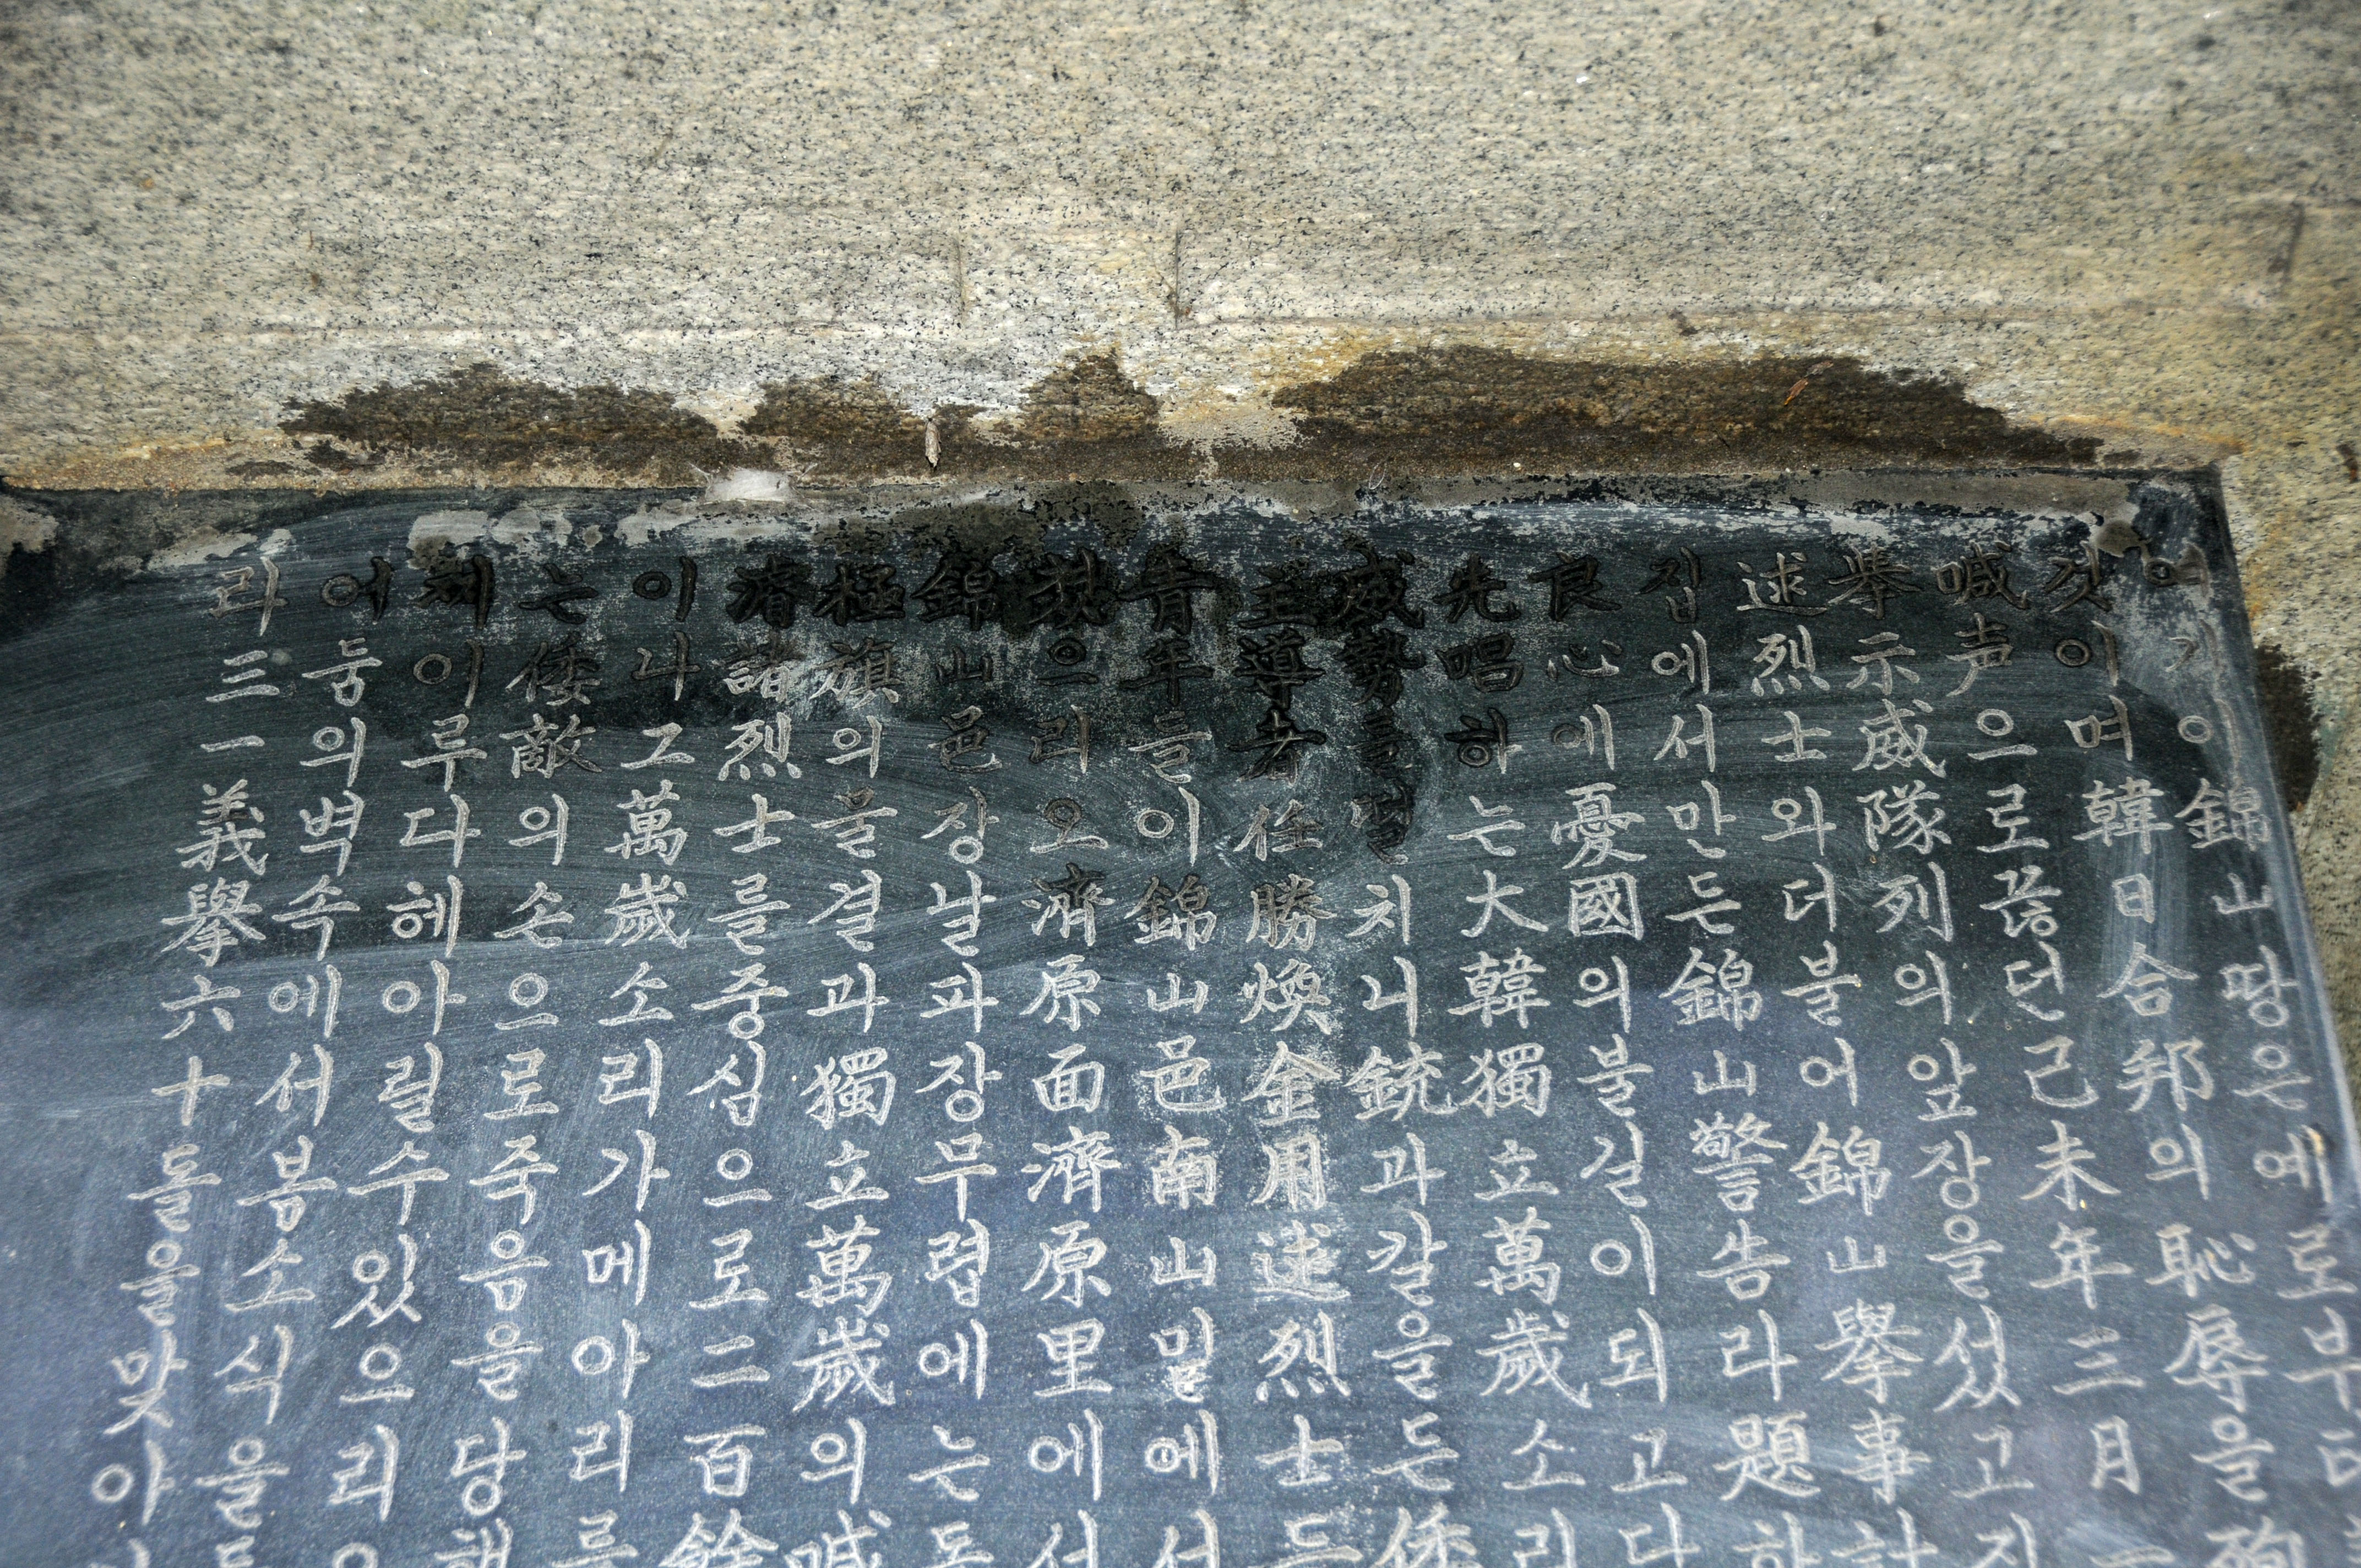 여기이錦山땅은예로부터
것이며韓日合邦의恥辱을
喊声으로끓던己未年三月
擧示威隊列의앞장을섰고
逑烈士와더불어錦山擧事計
집에서만든錦山警告라題하
良心에憂國의불길이되고다
先唱하는大韓獨立萬歲소리
威勢를떨치니銃과칼을든倭
主導者任勝煥金用逑烈士
青年들이錦山邑南山밑에서
으리오濟原面濟原里에서
錦山邑장날파장무렵에는
極旗의물결과獨立萬歲의喊
濬諸烈士를중심으로二百餘
이나그萬歲소리가메아리를
는倭敵의손으로죽음을당해
체이루다헤아릴수있으리오
어둠의벽속에서봄소식을
라三一義擧六十돌을맞아